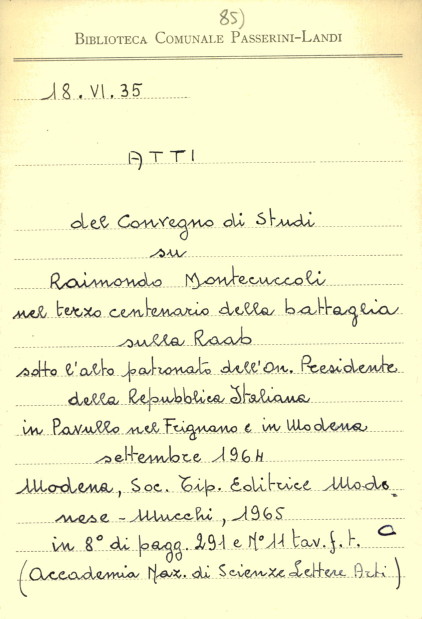 85)
BIBLIOTECA COMUNALE PASSERINI-LANDI
18.VI.35
ATTI
del Convegno di Studi
su
Raimondo Montecuccoli
nel terzo centenario della battaglia
sulla Raab
sotto l'alto patronato dell'On. Presidente
della Repubblica Italiana
in Pavullo nel Frignano e in Modena
settembre 1964
Modena, Soc. Tip. Editrice Mode
nese - Mucchi, 1965
in 8° di pagg. 291 e N° 11 tav. f. t.
(Accademia Naz. di Scienze Lettere Arti)